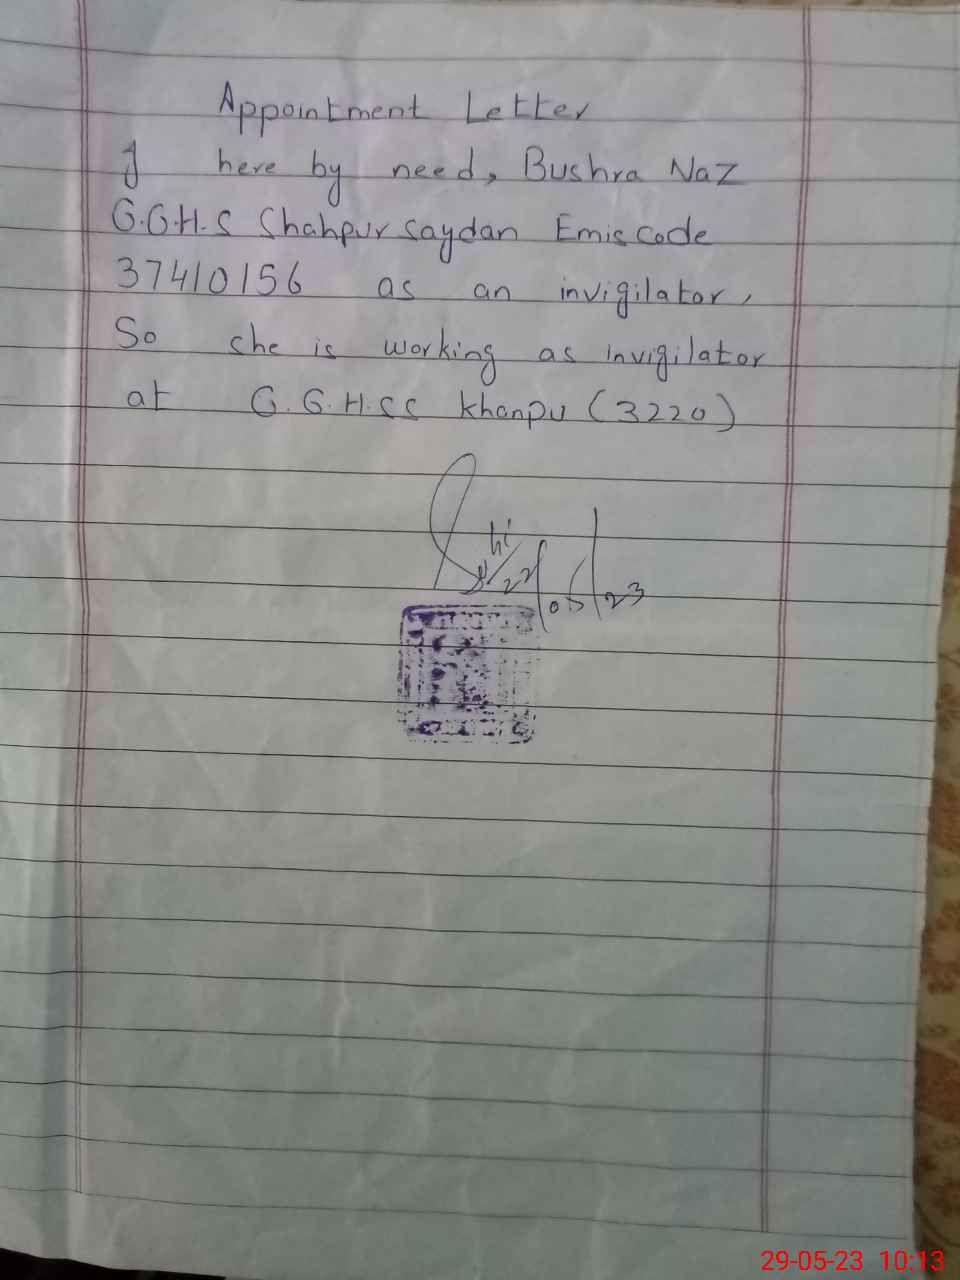 Appointment Letter
I here by need, Bushra Naz
G.G.H.S Shahpur saydan Emis code
37410156 as an invigilator,
So she is working as invigilator
at G.G.H.SS khanpu (3220)
22/05/23
29-05-23 10:13